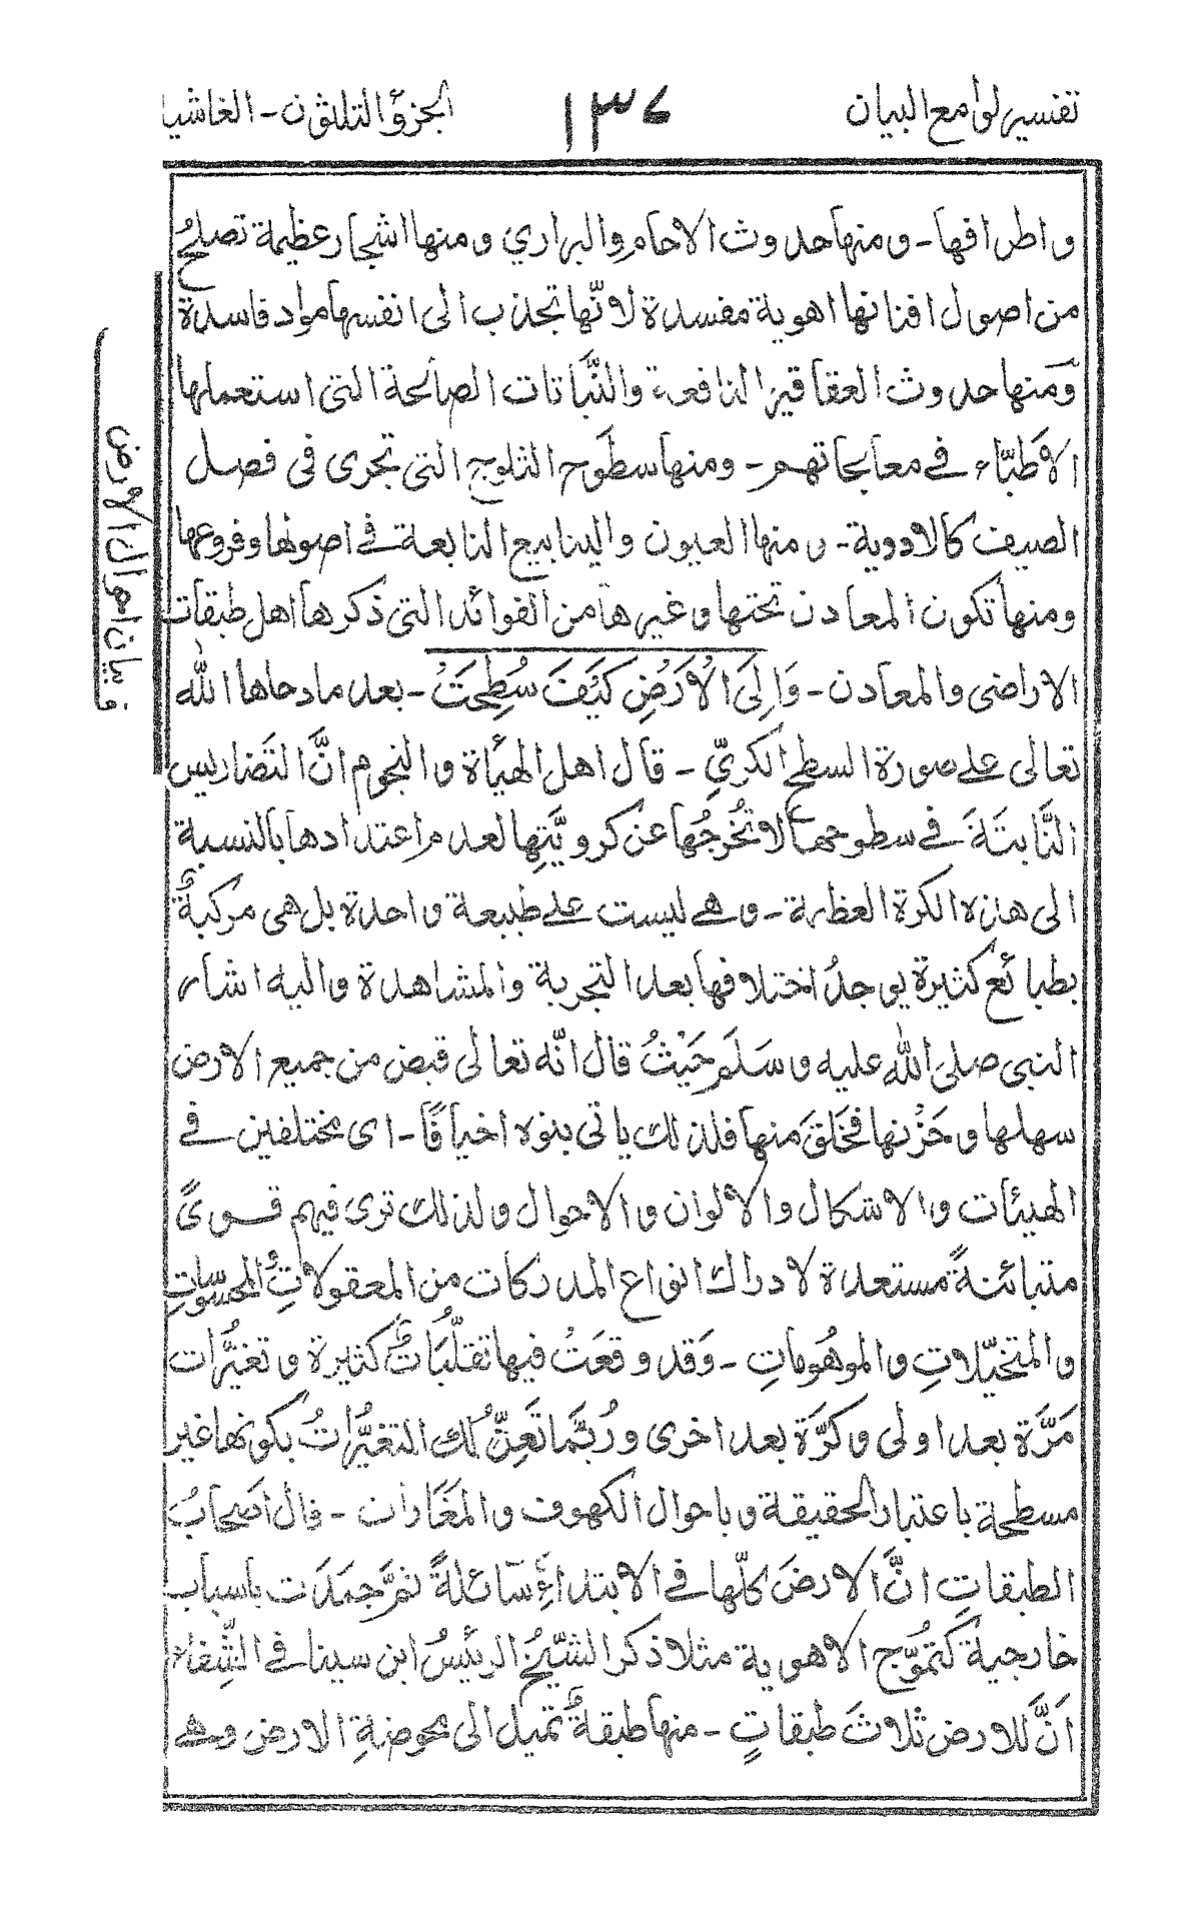 تفسير لوامع البيان
١٣٤
الجزؤ الثلثون - الغاشيا
واطرافها - ومنها حدوث الاجام والبراري ومنها اشجار عظيمة تصلحُ
من اصول افنانها اهوية مفسدة لانّها تجذب الى انفسها مواد فاسدة
ومنها حدوث العقاقير النافعة والنَّباتات الصالحة التى استعملها
الاَطبّاء فى معالجاتهم - ومنها سطوح الثلوج التى تجرى فى فصل
الصيف كالادوية - ومنها العيون والينابيع النابعة فى اصولها وفروعها
ومنها تكون المعادن تحتها وغيرها من الفوائد التى ذكرها اهل طبقات
الاراضى والمعادن - وَاِلَى الْاَرْضِ كَيْفَ سُطِحَتْ - بعد مادحاها اللّٰه
تعالى على صورة السطح الكريّ - قال اهل الهيأة والنجوم انَّ التَضاريس
النَّابتَةَ فى سطوحها لا تُخْرجُها عن كرويَّتِها لعدم اعتدادها بالنسبة
الى هذه الكرة العظيمة - وهى ليست على طبيعة واحدة بل هى مركبةٌ
بطبائع كثيرة يوجدُ اختلافها بعد التجربة والمشاهدة واليه اشار
النبى صلى اللّٰه عليه وسَلَم حَيْثُ قال انّه تعالى قبض من جميع الارض
سهلها وحَزْنها فخَلَقَ منها فلذلك ياتى بنوه اخيافًا - اى مختلفين فى
الهيئات والاشكال والالوان والاحوال ولذلك ترى فيهم قوىً
متبائنةً مستعدة لادراك انواع المدركات من المعقولاتِ والمحسوساتِ
والمتخيّلاتِ والموهُوماتِ - وَقد وقعَتْ فيها تقلّبَاتٌ كثيرة وتغيُّرات
مَرَّة بعد اولى وكَرَّة بعد اخرى ورُبَّما تَعِنُّ لك التغيُّراتُ بكونها غير
مسطحة باعتبار الحقيقة وباحوال الكهوف والمَغَارات - قال اصحابُ
الطبقاتِ انَّ الارضَ كلّها فى الابتداءِ سَائلةً ثمَّ جمَدَت باسباب
خارجيةٍ كتموُّج الاهوية مثلا ذكر الشَّيْخُ الرئيسُ ابن سينا فى الشِّفاء
اَنَّ للارض ثلاثَ طبقاتٍ - منها طبقةٌ تميل الى محوضةِ الارض وهى
بيان احوال الارض